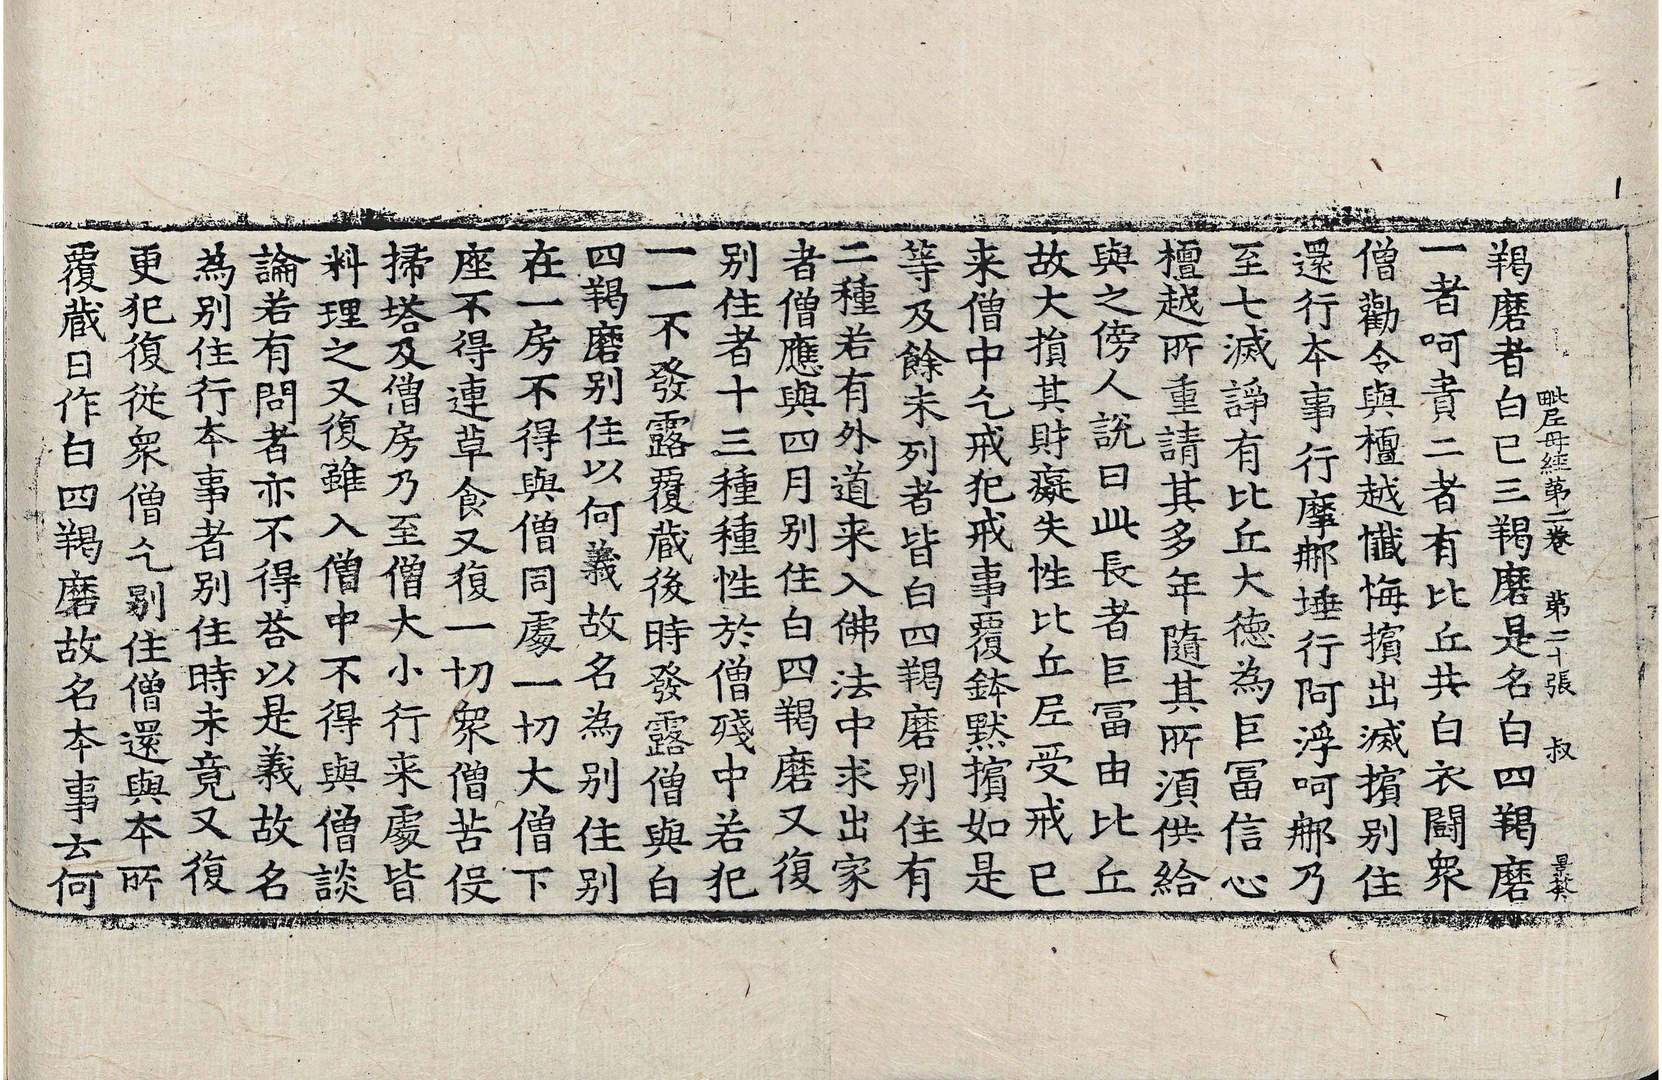 毗尼母經第二卷　第二十張　叔
羯磨者白已三羯磨是名白四羯磨
一者呵責二者有比丘共白衣鬪衆
僧勸令與檀越懺悔擯出滅擯別住
還行本事行摩䣯埵行阿浮呵䣯乃
至七滅諍有比丘大德為巨冨信心
檀越所重請其多年隨其所湏供給
與之傍人說曰此長者巨冨由比丘
故大損其財癡失性比丘尼受戒已
来僧中乞戒犯戒事覆鉢默擯如是
等及餘未列者皆白四羯磨別住有
二種若有外道来入佛法中求出家
者僧應與四月別住白四羯磨又復
別住者十三種種性於僧殘中若犯
一一不發露覆藏後時發露僧與白
四羯磨別住以何義故名為別住別
在一房不得與僧同處一切大僧下
座不得連草食又復一切衆僧苦伇
掃塔及僧房乃至僧大小行来處皆
料理之又復雖入僧中不得與僧談
論若有問者亦不得荅以是義故名
為別住行本事者別住時未竟又復
更犯復從衆僧乞別住僧還與本所
覆藏日作白四羯磨故名本事云何